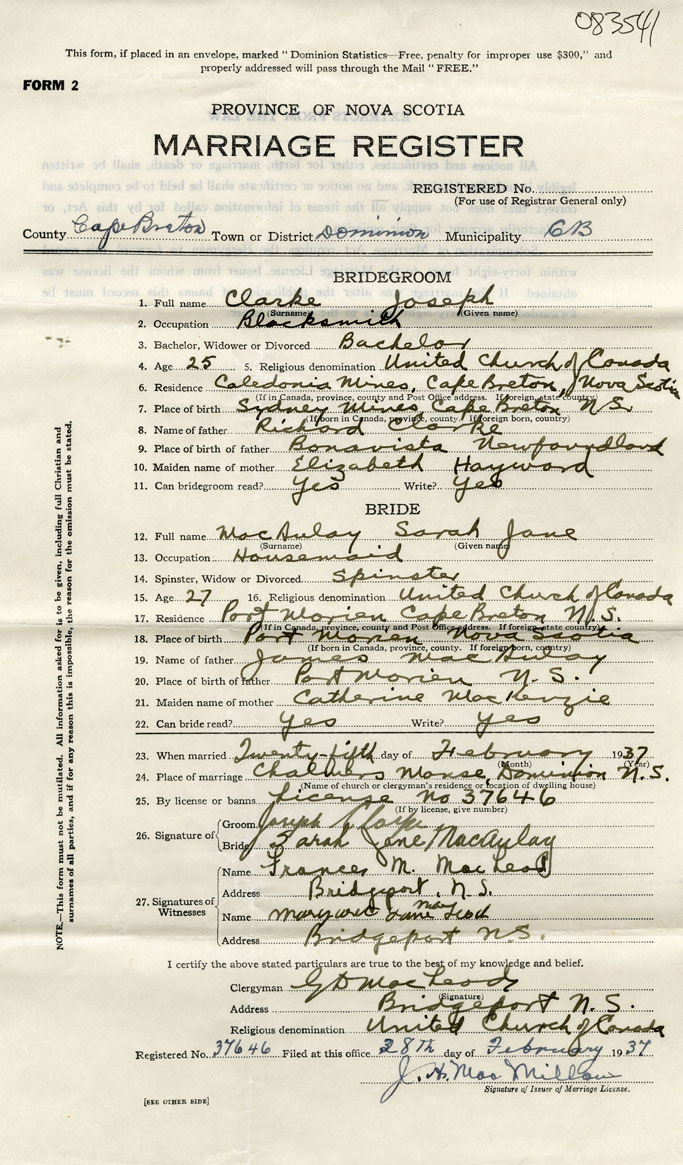 083541
This form, if placed in an envelope, marked "Dominion Statistics—Free, penalty for improper use $300," and
properly addressed will pass through the Mail "FREE."
FORM 2
PROVINCE OF NOVA SCOTIA
MARRIAGE REGISTER
REGISTERED No.
(For use of Registrar General only)
County Cape Breton Town or District Dominion Municipality CB
BRIDEGROOM
1. Full name Clarke Joseph
(Surname) (Given name)
2. Occupation Blacksmith
3. Bachelor, Widower or Divorced Bachelor
4. Age 25 5. Religious denomination United Church of Canada
6. Residence Caledonia Mines, Cape Breton, Nova Scotia
(If in Canada, province, county and Post Office address. If foreign state country)
7. Place of birth Sydney Mines, Cape Breton N.S.
(If born in Canada, province, county. If foreign born, country)
8. Name of father Richard Clarke
9. Place of birth of father Bonavista Newfoundland
10. Maiden name of mother Elizabeth Hayward
11. Can bridegroom read? Yes Write? Yes
BRIDE
12. Full name MacAulay Sarah Jane
(Surname) (Given name)
13. Occupation Housemaid
14. Spinster, Widow or Divorced Spinster
15. Age 27 16. Religious denomination United Church of Canada
17. Residence Port Morien Cape Breton N.S.
(If in Canada, province, county and Post Office address. If foreign state country)
18. Place of birth Port Morien Nova Scotia
(If born in Canada, province, county. If foreign born, country)
19. Name of father James MacAulay
20. Place of birth of father Port Morien N.S.
21. Maiden name of mother Catherine MacKenzie
22. Can bride read? Yes Write? Yes
23. When married Twenty-fifth day of February 1937
(Month) (Year)
24. Place of marriage Chalmers Manse, Dominion N.S.
(Name of church or clergyman's residence or location of dwelling house)
25. By license or banns license no 37646
(If by license, give number)
26. Signature of
Groom Joseph Clarke
Bride Sarah Jane MacAulay
27. Signatures of Witnesses
Name Frances M. MacLeod
Address Bridgeport, N.S.
Name may
Address Bridgeport N.S.
I certify the above stated particulars are true to the best of my knowledge and belief.
Clergyman G D MacLeod
(Signature)
Address Bridgeport N.S.
Religious denomination United Church of Canada
Registered No. 37646 Filed at this office 28th day of February 1937
J. H. MacMillan
Signature of Issuer of Marriage License.
[SEE OTHER SIDE]
NOTE.—This form must not be mutilated. All information asked for is to be given, including full Christian and
surnames of all parties, and if for any reason this is impossible, the reason for the omission must be stated.